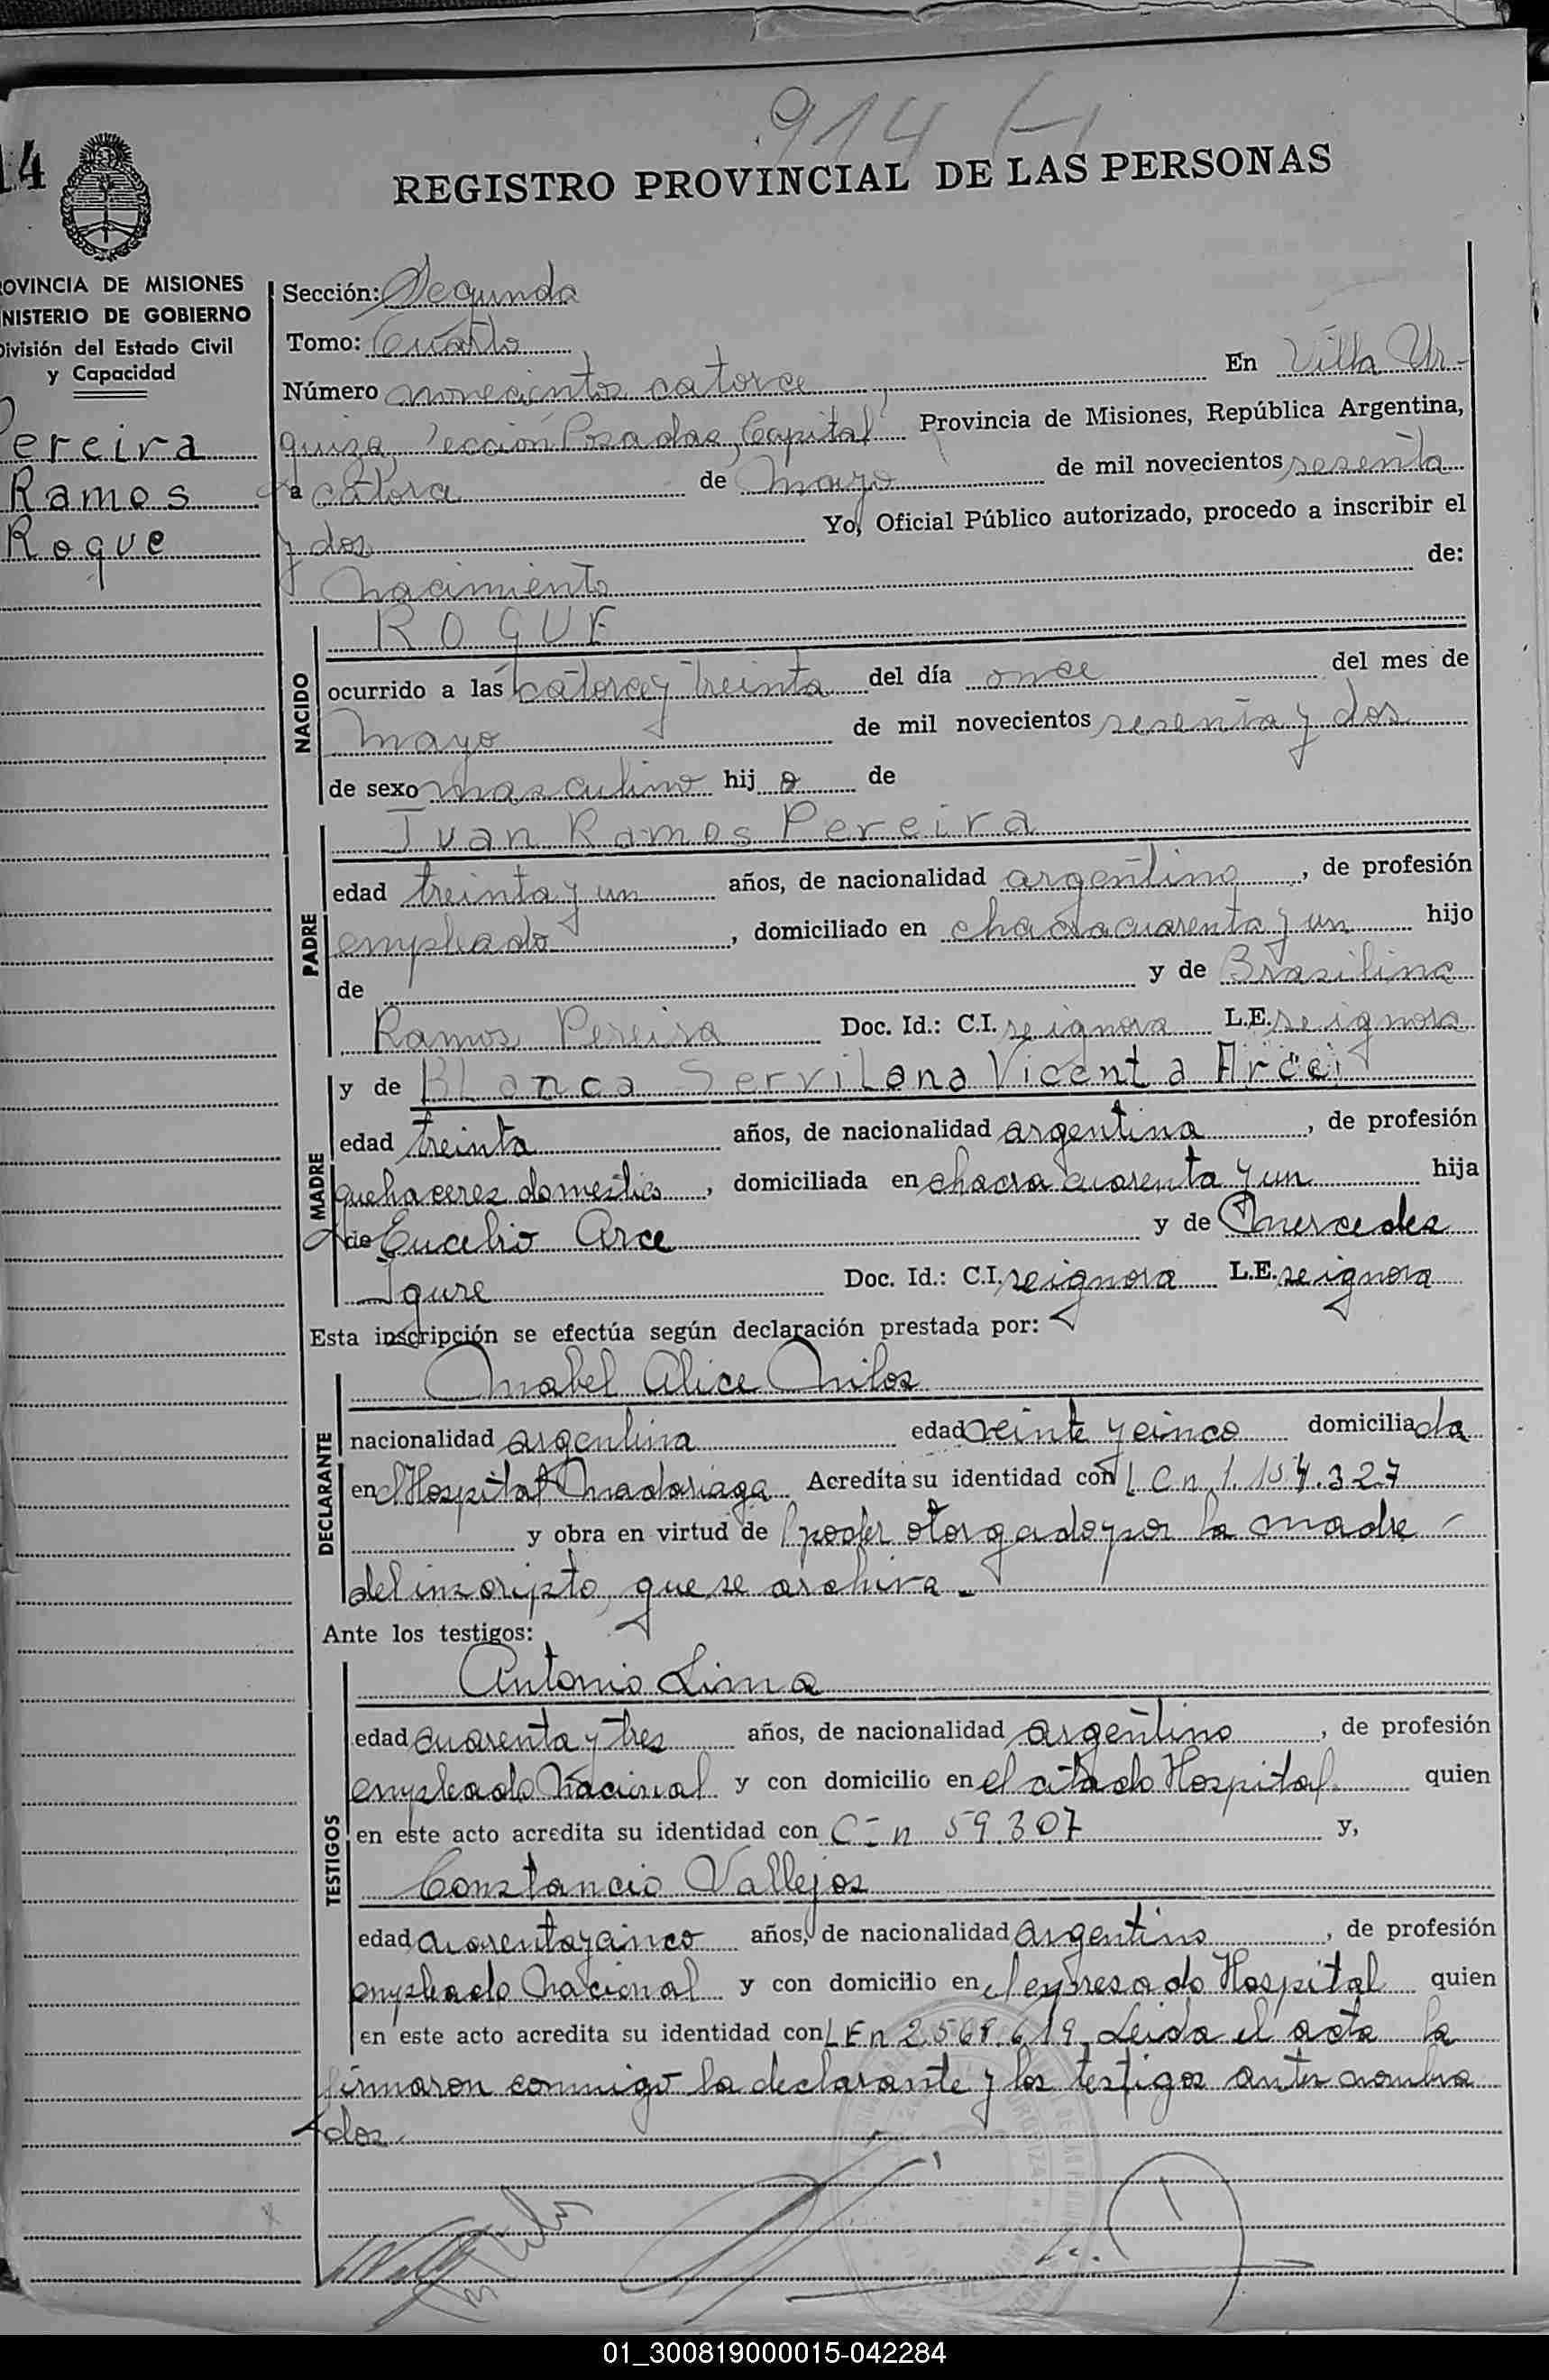 914
14
REGISTRO PROVINCIAL DE LAS PERSONAS
ROVINCIA DE MISIONES
NISTERIO DE GOBIERNO
División del Estado Civil
y Capacidad
Pereira
Ramos
Roque
Sección: Segunda
Tomo: Cuarto
Número novecientos catorce, En Villa Ur-
quiza, Sección Posadas, Capital Provincia de Misiones, República Argentina,
a catorce de mayo de mil novecientos sesenta
y dos Yo, Oficial Público autorizado, procedo a inscribir el
nacimiento de:
NACIDO
ROQUE
ocurrido a las catorce y treinta del día once del mes de
mayo de mil novecientos sesenta y dos
de sexo masculino hijo de
PADRE
Juan Ramos Pereira
edad treinta y un años, de nacionalidad argentino, de profesión
empleado, domiciliado en chacra cuarenta y un hijo
de y de Brasilina
Ramos Pereira Doc. Id.: C.I. se ignora L.E. se ignora
MADRE
y de Blanca Servilana Vicenta Arce
edad treinta años, de nacionalidad argentina, de profesión
quehaceres domestics, domiciliada en chacra cuarenta y un hija
de Eucebio Arce y de Mercedes
Igure Doc. Id.: C.I. se ignora L.E. se ignora
Esta inscripción se efectúa según declaración prestada por:
DECLARANTE
Mabel Alice Milos
nacionalidad argentina edad veinte y cinco domiciliada
en el Hospital Madariaga Acredita su identidad con L C n 1.154.327
y obra en virtud de poder otorgado por la madre
del inscripto, que se archiva.
Ante los testigos:
TESTIGOS
Antonio Lima
edad cuarenta y tres años, de nacionalidad argentino, de profesión
empleado Nacional y con domicilio en el citado Hospital quien
en este acto acredita su identidad con C I n 59.307 y,
Constancio Vallejos
edad cuarenta y cinco años, de nacionalidad argentino, de profesión
empleado Nacional y con domicilio en el expresado Hospital quien
en este acto acredita su identidad con L E n 2.568.619 Leida el acta la
firmaron conmigo la declarante y los testigos antes nombra
dos.
01_300819000015-042284